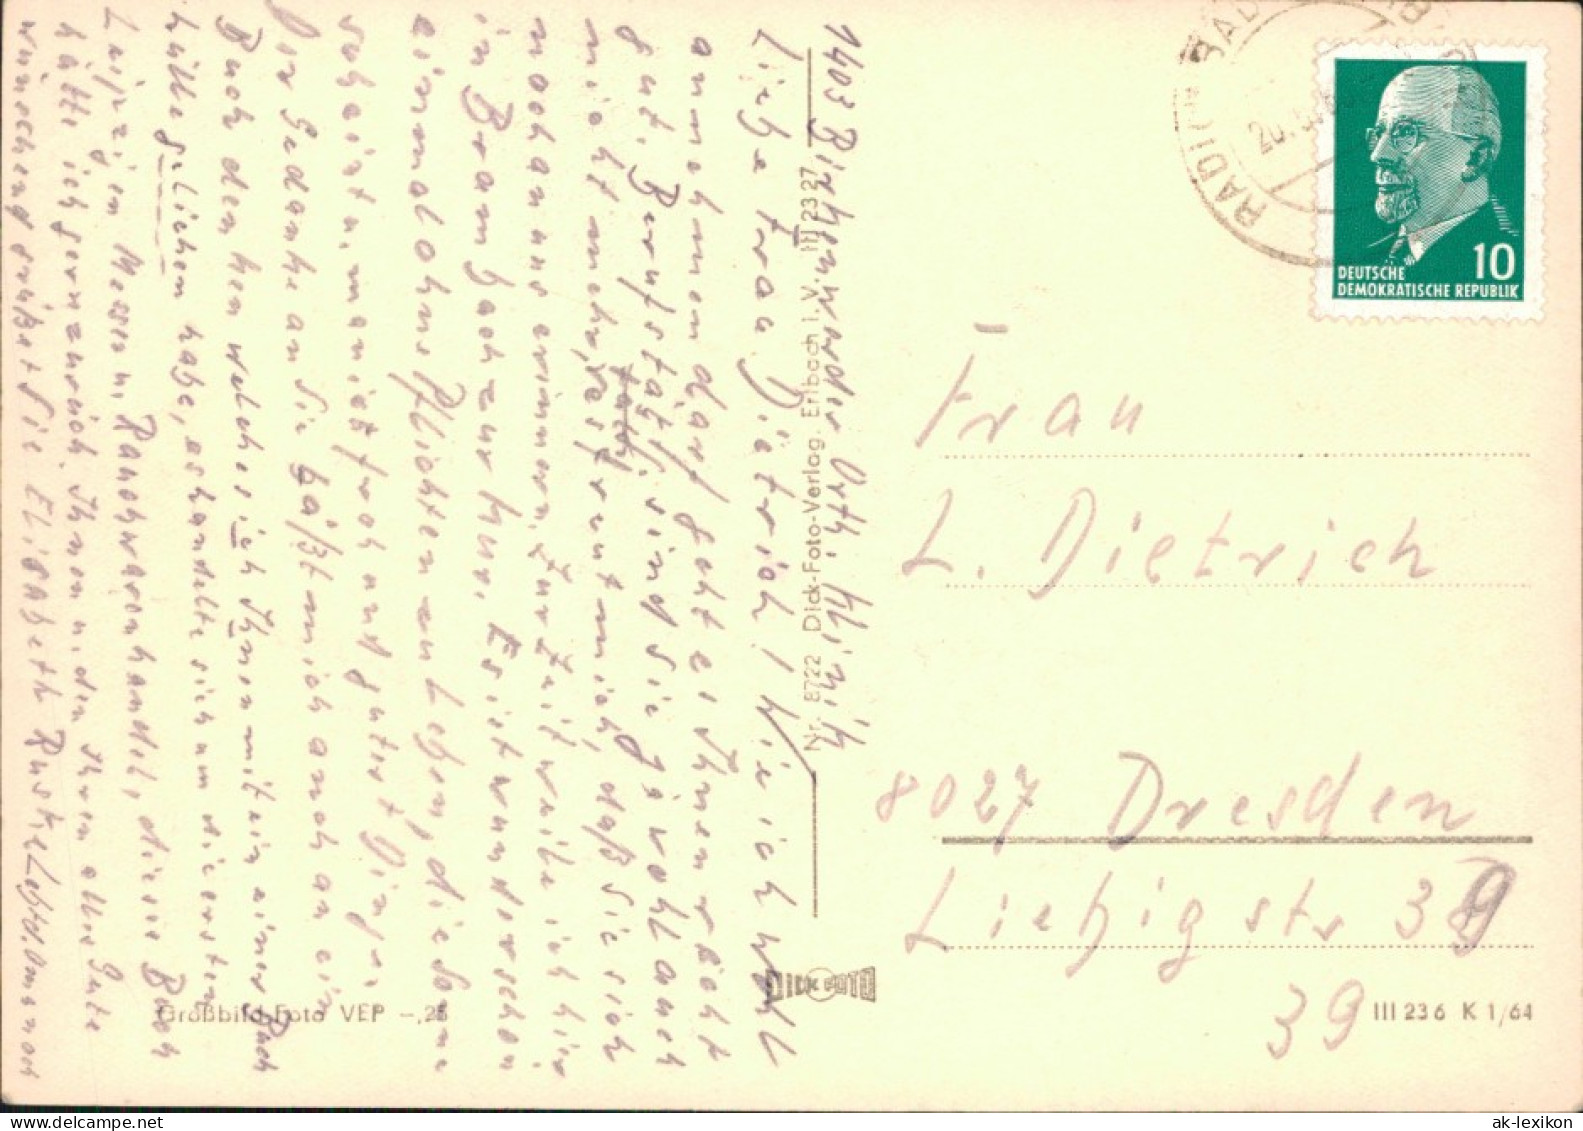 1403 Birkenwerder Orth. Klinik
Liebe Frau Dietrich! Wie ich wohl
annehmen darf geht es Ihnen recht
gut. Berufstätig sind Sie ja wohl auch
nicht mehr, es freut mich, daß Sie sich
noch an uns erinnern. Zur Zeit weile ich hier
in Bram nach zur Kur. Es ist wunderschön
einmal ohne Pflichten zu leben, die Sonne
scheint, man ist froh und guter Dinge.
Der Gedanke an Sie läßt mich auch an ein
Buch denken welches ich Ihnen mit ein einer Buch
hülle geliehen habe, es handelte sich um die ersten
Leipziger Messen u. Rauchwarenhandel, dieses Buch
hätte ich gern zurück. Ihnen u. den Ihren alles Gute
wünschend grüßt Sie Elisabeth
Nr. 8722 Dick-Foto-Verlag, Erlbach i. V. III 23 27
DICK FOTO
Großbild-Foto VEP -,25
RADIUM BAD
20.
10
DEUTSCHE
DEMOKRATISCHE REPUBLIK
Frau
L. Dietrich
8027 Dresden
Liebigstr 39
39
III 23 6 K 1/64
ak-lexikon